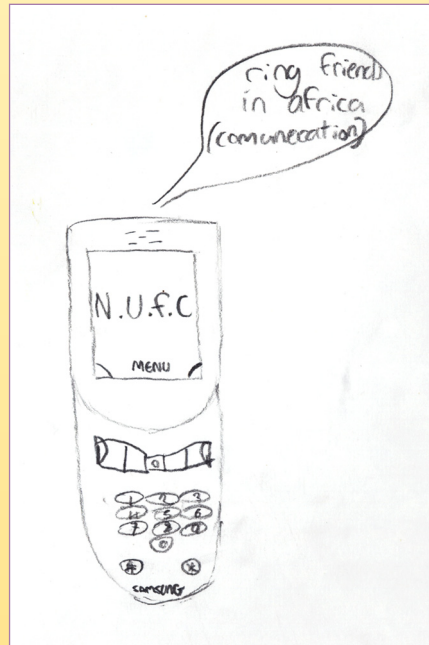 ring friends
in africa
(comunecation)
N.U.F.C
MENU
1 2 3
4 5 6
7 8 9
0
# *
SAMSUNG